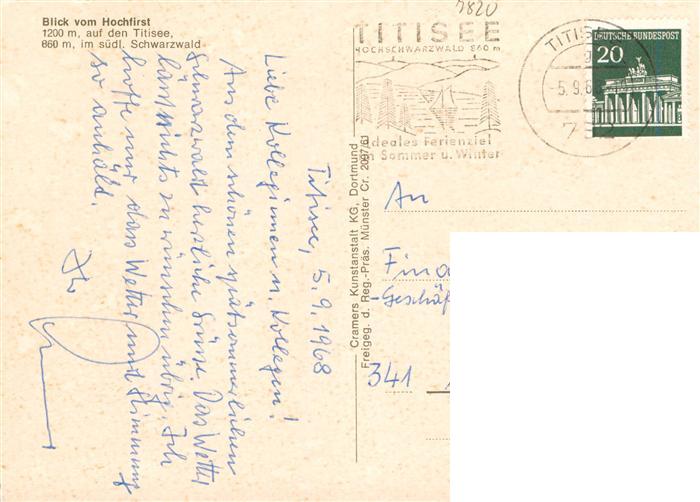 Blick vom Hochfirst
1200 m, auf den Titisee,
860 m, im südl. Schwarzwald
7820
TITISEE
HOCHSCHWARZWALD 860 m
Ideales Ferienziel
im Sommer u. Winter
TITISEE
-5.9.68
DEUTSCHE BUNDESPOST
20
Titisee, 5.9.1968
Liebe Kolleginnen u. Kollegen!
Aus dem schönen spätsommerlichen
Schwarzwald herzliche Grüsse. Das Wetter
läßt nichts zu wünschen übrig. Ich
hoffe nur dass Wetter und Stimmung
so anhält.
Ihr
Cramers Kunstanstalt KG, Dortmund
Freigeg. d. Reg.-Präs. Münster Cr. 2097/61
An
Fina
-Geschäf
341